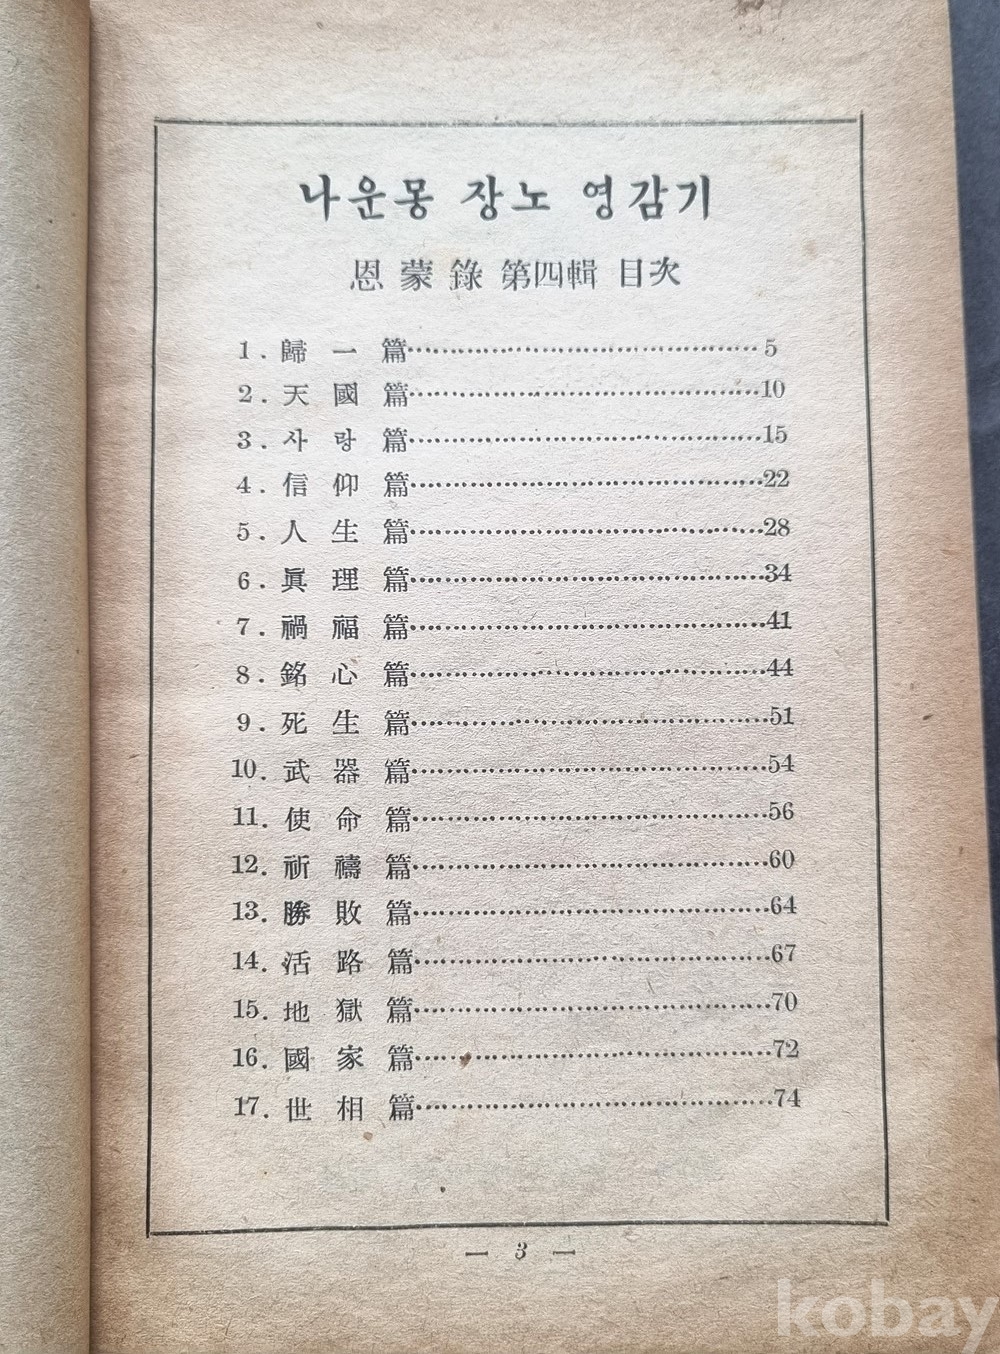 나운몽 장노 영감기
恩蒙錄 第四輯 目次
1. 歸一篇……5
2. 天國篇……10
3. 사랑篇……15
4. 信仰篇……22
5. 人生篇……28
6. 眞理篇……34
7. 禍福篇……41
8. 銘心篇……44
9. 死生篇……51
10. 武器篇……54
11. 使命篇……56
12. 祈禱篇……60
13. 勝敗篇……64
14. 活路篇……67
15. 地獄篇……70
16. 國家篇……72
17. 世相篇……74
— 3 —
kobay